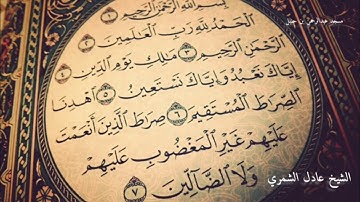 مسجد عبدالرحمن بن جميل
بِسْمِ ٱللَّهِ ٱلرَّحْمَٰنِ ٱلرَّحِيمِ ١
ٱلْحَمْدُ لِلَّهِ رَبِّ ٱلْعَٰلَمِينَ ٢
ٱلرَّحْمَٰنِ ٱلرَّحِيمِ ٣ مَٰلِكِ يَوْمِ ٱلدِّينِ ٤
إِيَّاكَ نَعْبُدُ وَإِيَّاكَ نَسْتَعِينُ ٥ ٱهْدِنَا
ٱلصِّرَٰطَ ٱلْمُسْتَقِيمَ ٦ صِرَٰطَ ٱلَّذِينَ أَنْعَمْتَ
عَلَيْهِمْ غَيْرِ ٱلْمَغْضُوبِ عَلَيْهِمْ
وَلَا ٱلضَّآلِّينَ ٧
الشيخ عادل الشمري